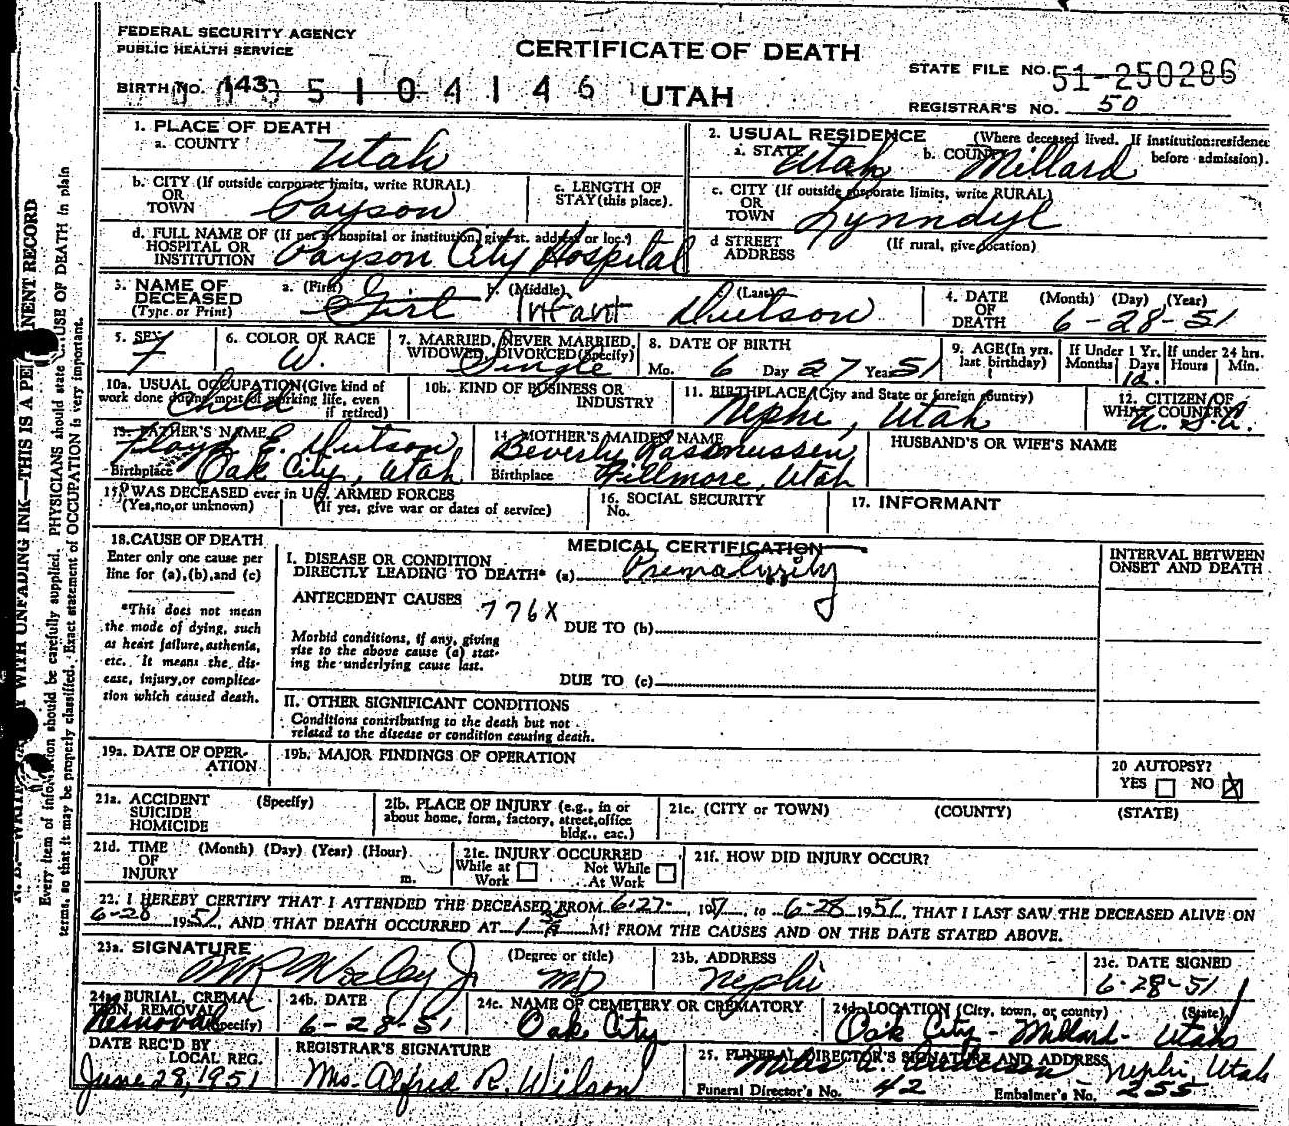 FEDERAL SECURITY AGENCY
PUBLIC HEALTH SERVICE
CERTIFICATE OF DEATH
STATE FILE NO. 51-250286
BIRTH NO. 143 5104146 UTAH
REGISTRAR'S NO. 50
1. PLACE OF DEATH
a. COUNTY Utah
2. USUAL RESIDENCE (Where deceased lived. If institution: residence before admission).
a. STATE Utah b. COUNTY Millard
b. CITY (If outside corporate limits, write RURAL)
OR
TOWN Payson
c. LENGTH OF
STAY (this place).
c. CITY (If outside corporate limits, write RURAL)
OR
TOWN Lynndyl
d. FULL NAME OF (If not in hospital or institution, give st. address or loc.)
HOSPITAL OR
INSTITUTION Payson City Hospital
d STREET (If rural, give location)
ADDRESS
3. NAME OF a. (First) b. (Middle) c. (Last)
DECEASED
(Type or Print) Girl Infant Dutson
4. DATE (Month) (Day) (Year)
OF
DEATH 6-28-51
5. SEX F
6. COLOR OR RACE W.
7. MARRIED, NEVER MARRIED,
WIDOWED, DIVORCED (Specify) Single
8. DATE OF BIRTH
Mo. 6 Day 27 Year 51
9. AGE (In yrs. last birthday)
If Under 1 Yr. Months Days
If under 24 hrs. Hours Min.
10a. USUAL OCCUPATION (Give kind of
work done during most of working life, even
if retired) Child
10b. KIND OF BUSINESS OR
INDUSTRY
11. BIRTHPLACE (City and State or foreign country)
Nephi, Utah
12. CITIZEN OF
WHAT COUNTRY? U.S.A.
13. FATHER'S NAME
Floyd E. Dutson
Birthplace Oak City, Utah
14. MOTHER'S MAIDEN NAME
Beverly Rasmussen
Birthplace Fillmore, Utah
HUSBAND'S OR WIFE'S NAME
15. WAS DECEASED ever in U.S. ARMED FORCES
(Yes, no, or unknown) (If yes, give war or dates of service)
16. SOCIAL SECURITY
No.
17. INFORMANT
18. CAUSE OF DEATH
Enter only one cause per
line for (a), (b), and (c)
*This does not mean
the mode of dying, such
as heart failure, asthenia,
etc. It means the dis-
ease, injury, or complica-
tion which caused death.
MEDICAL CERTIFICATION
I. DISEASE OR CONDITION
DIRECTLY LEADING TO DEATH* (a) Prematurity
ANTECEDENT CAUSES 776X
DUE TO (b)
Morbid conditions, if any, giving
rise to the above cause (a) stat-
ing the underlying cause last.
DUE TO (c)
II. OTHER SIGNIFICANT CONDITIONS
Conditions contributing to the death but not
related to the disease or condition causing death.
INTERVAL BETWEEN
ONSET AND DEATH
19a. DATE OF OPER-
ATION
19b. MAJOR FINDINGS OF OPERATION
20 AUTOPSY?
YES NO X
21a. ACCIDENT (Specify)
SUICIDE
HOMICIDE
21b. PLACE OF INJURY (e.g., in or
about home, farm, factory, street, office
bldg., eac.)
21c. (CITY or TOWN) (COUNTY) (STATE)
21d. TIME (Month) (Day) (Year) (Hour)
OF
INJURY m.
21e. INJURY OCCURRED
While at Work Not While At Work
21f. HOW DID INJURY OCCUR?
22. I HEREBY CERTIFY THAT I ATTENDED THE DECEASED FROM 6-27-, 1951, to 6-28 1951, THAT I LAST SAW THE DECEASED ALIVE ON
6-28 1951, AND THAT DEATH OCCURRED AT M! FROM THE CAUSES AND ON THE DATE STATED ABOVE.
23a. SIGNATURE (Degree or title) MD
23b. ADDRESS Nephi
23c. DATE SIGNED
6-28-51
24a. BURIAL, CREMA
TION, REMOVAL
(Specify) Removal
24b. DATE
6-28-51
24c. NAME OF CEMETERY OR CREMATORY
Oak City
24d. LOCATION (City, town, or county) (State)
Oak City - Millard - Utah
DATE REC'D BY
LOCAL REG.
June 28, 1951
REGISTRAR'S SIGNATURE
Mrs. Alfred R. Wilson
25. FUNERAL DIRECTOR'S SIGNATURE AND ADDRESS
Miles A. Anderson Nephi, Utah
Funeral Director's No. 42 Embalmer's No. 255
WITH UNFADING INK—THIS IS A PERMANENT RECORD
Every item of information should be carefully supplied. PHYSICIANS should state CAUSE OF DEATH in plain
terms, so that it may be properly classified. Exact statement of OCCUPATION is very important.